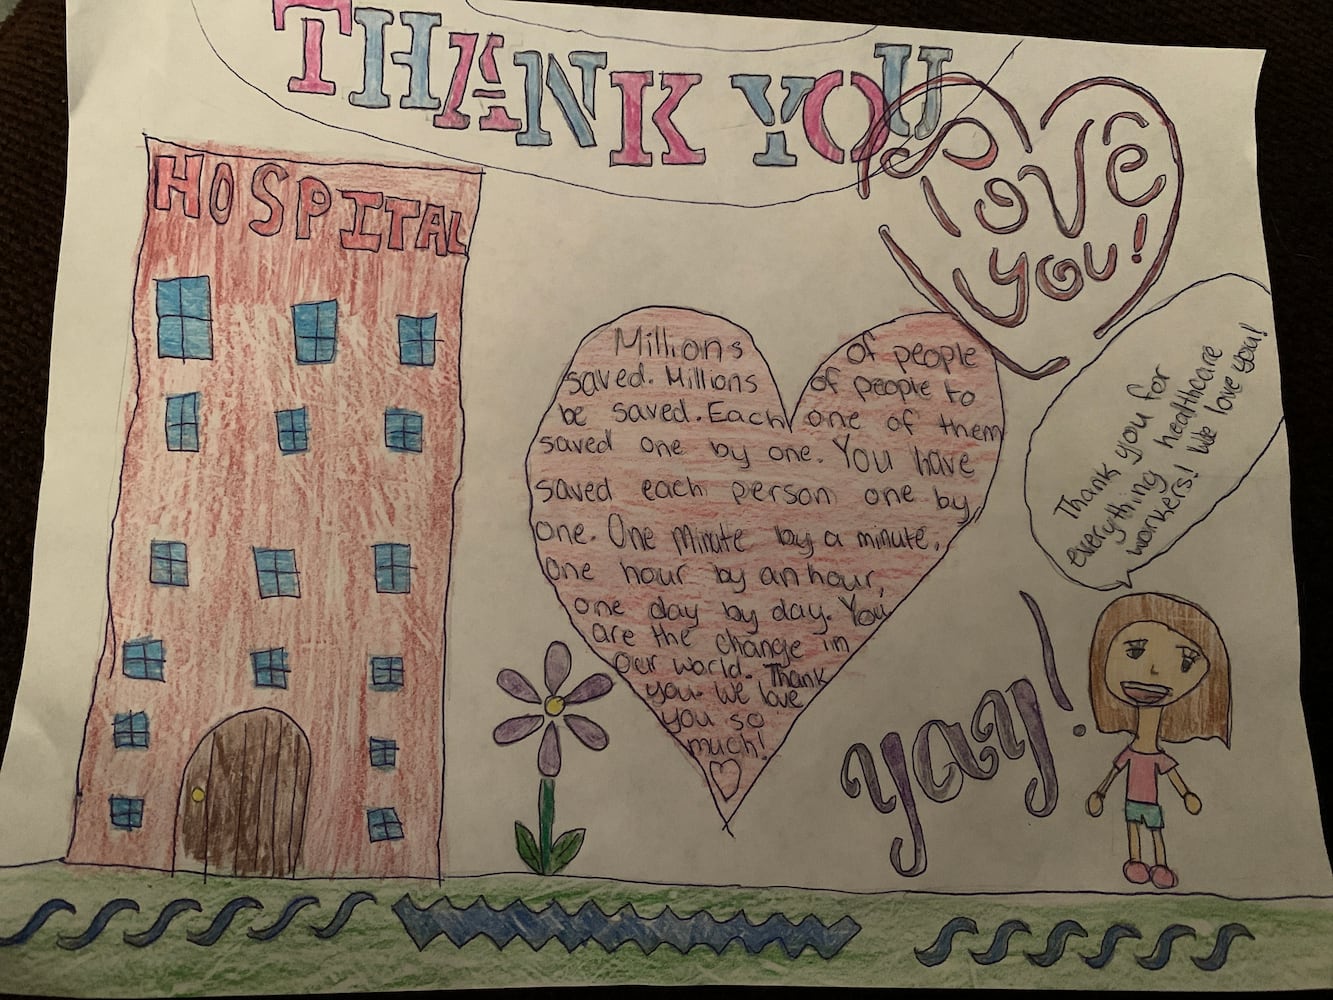 THANK YOU
LOVE
YOU!
HOSPITAL
Millions of people
saved. Millions of people to
be saved. Each one of them
saved one by one. You have
saved each person one by
one. One minute by a minute,
one hour by an hour,
one day by day. You
are the change in
our world. Thank
you. We love
you so
much!
Thank you for
everything healthcare
workers! We love you!
yay!